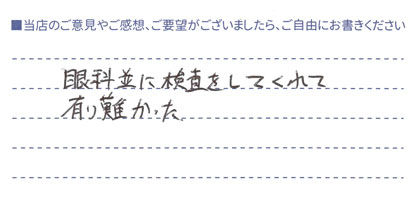 ■当店のご意見やご感想、ご要望がございましたら、ご自由にお書きください
眼科並に検査をしてくれて
有り難かった